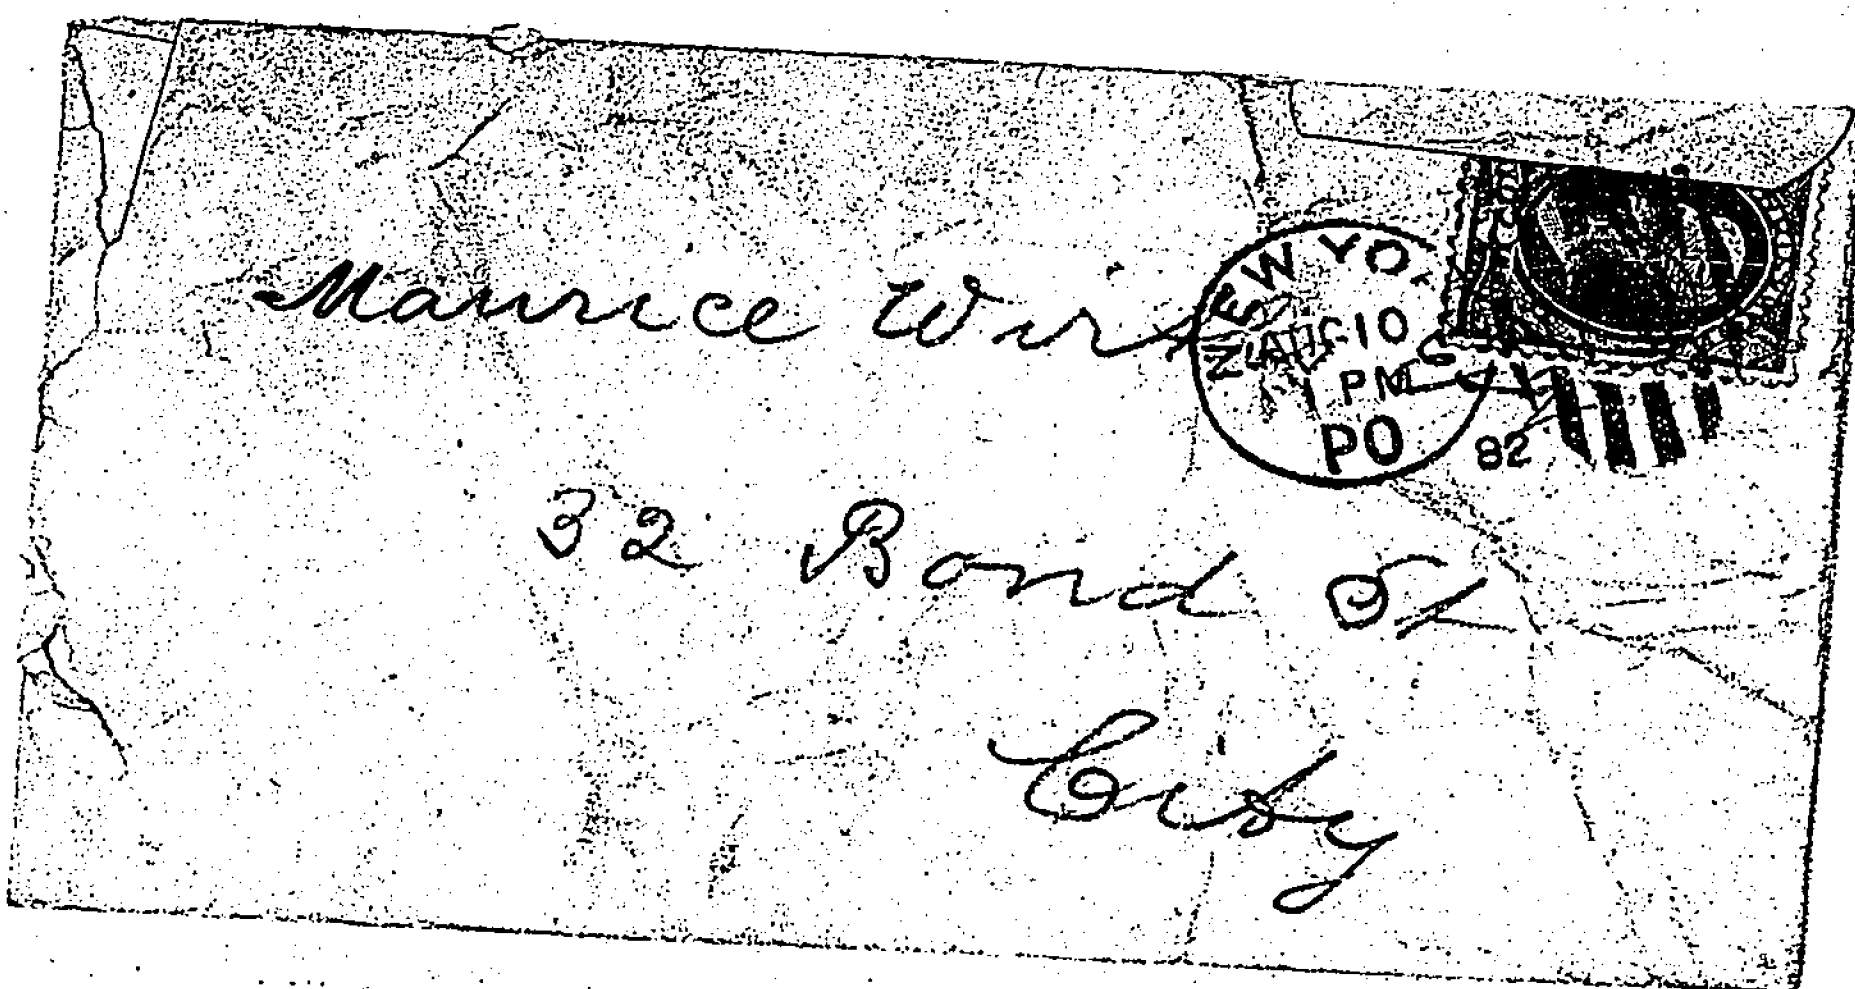 Maurice
NEW YO
AUG 10
1 PM
PO
82
32 Bond St
City